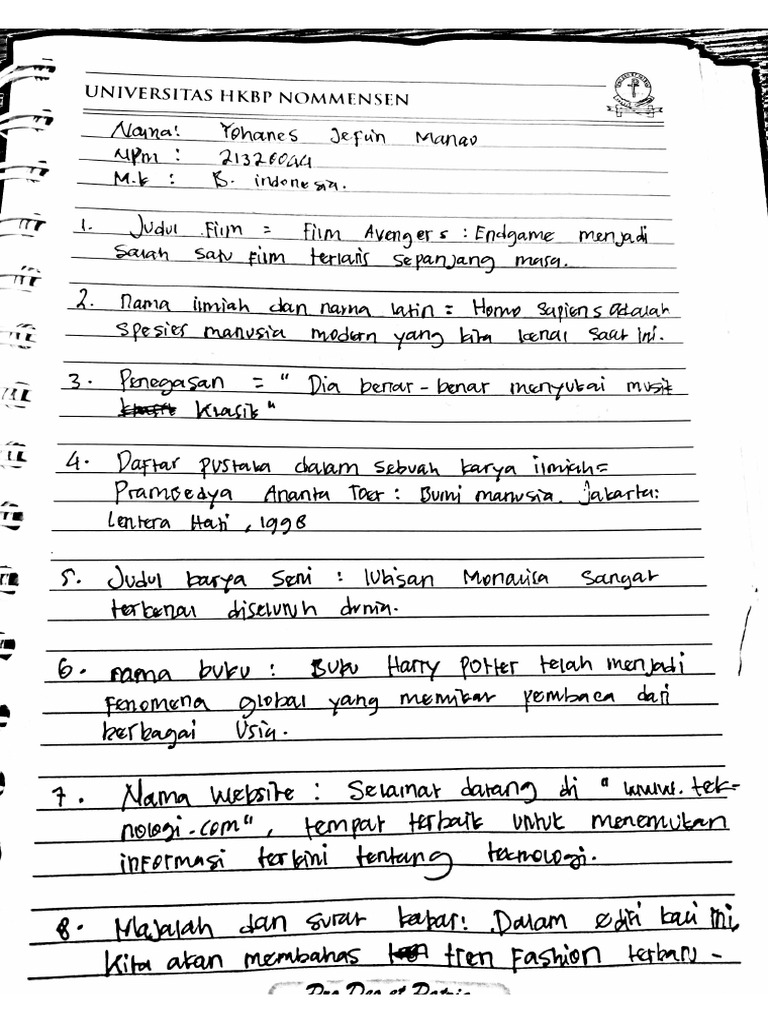 UNIVERSITAS HKBP NOMMENSEN
Nama: Yohanes Jefun Manao
Npm : 21320044
M.k : B. indonesia.
1. Judul Film = Film Avengers : Endgame menjadi
salah satu film terlaris sepanjang masa.
2. nama ilmiah dan nama latin = Homo sapiens adalah
spesies manusia modern yang kita kenal saat ini.
3. Penegasan = " Dia benar-benar menyukai musik
Klasik"
4. Daftar pustaka dalam sebuah karya ilmiah =
Pramoedya Ananta Toer : Bumi manusia. Jakarta:
lentera Hati, 1998
5. Judul karya seni : lukisan Monalisa sangat
terkenal diseluruh dunia.
6. nama buku : Buku Harry Potter telah menjadi
fenomena global yang memikat pembaca dari
berbagai Usia.
7. Nama website : Selamat datang di " www.tek-
nologi.com", tempat terbaik untuk menemukan
informasi terkini tentang teknologi.
8. Majalah dan surat kabar: Dalam edisi kali ini,
Kita akan membahas tren Fashion terbaru -
Pro Deo et Patria